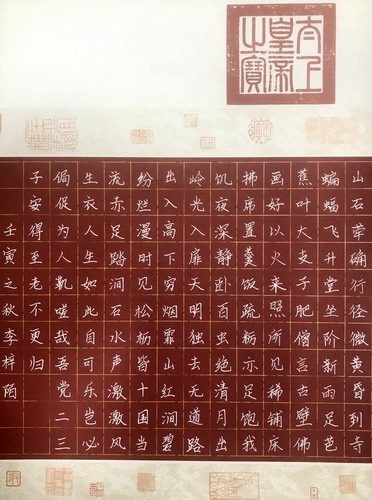 太上皇帝之寶
山石荦确行径微黄昏到寺
蝙蝠飞升堂坐阶新雨足芭
蕉叶大支子肥僧言古壁佛
画好以火来照所见稀铺床
拂席置羹饭疏粝亦足饱我
饥夜深静卧百虫绝清月出
岭光入扉天明独去无道路
出入高下穷烟霏山红涧碧
纷烂漫时见松枥皆十围当
流赤足踏涧石水声激激风
生衣人生如此自可乐岂必
侷促为人鞿嗟哉吾党二三
子安得至老不更归
壬寅之秋李梓陌